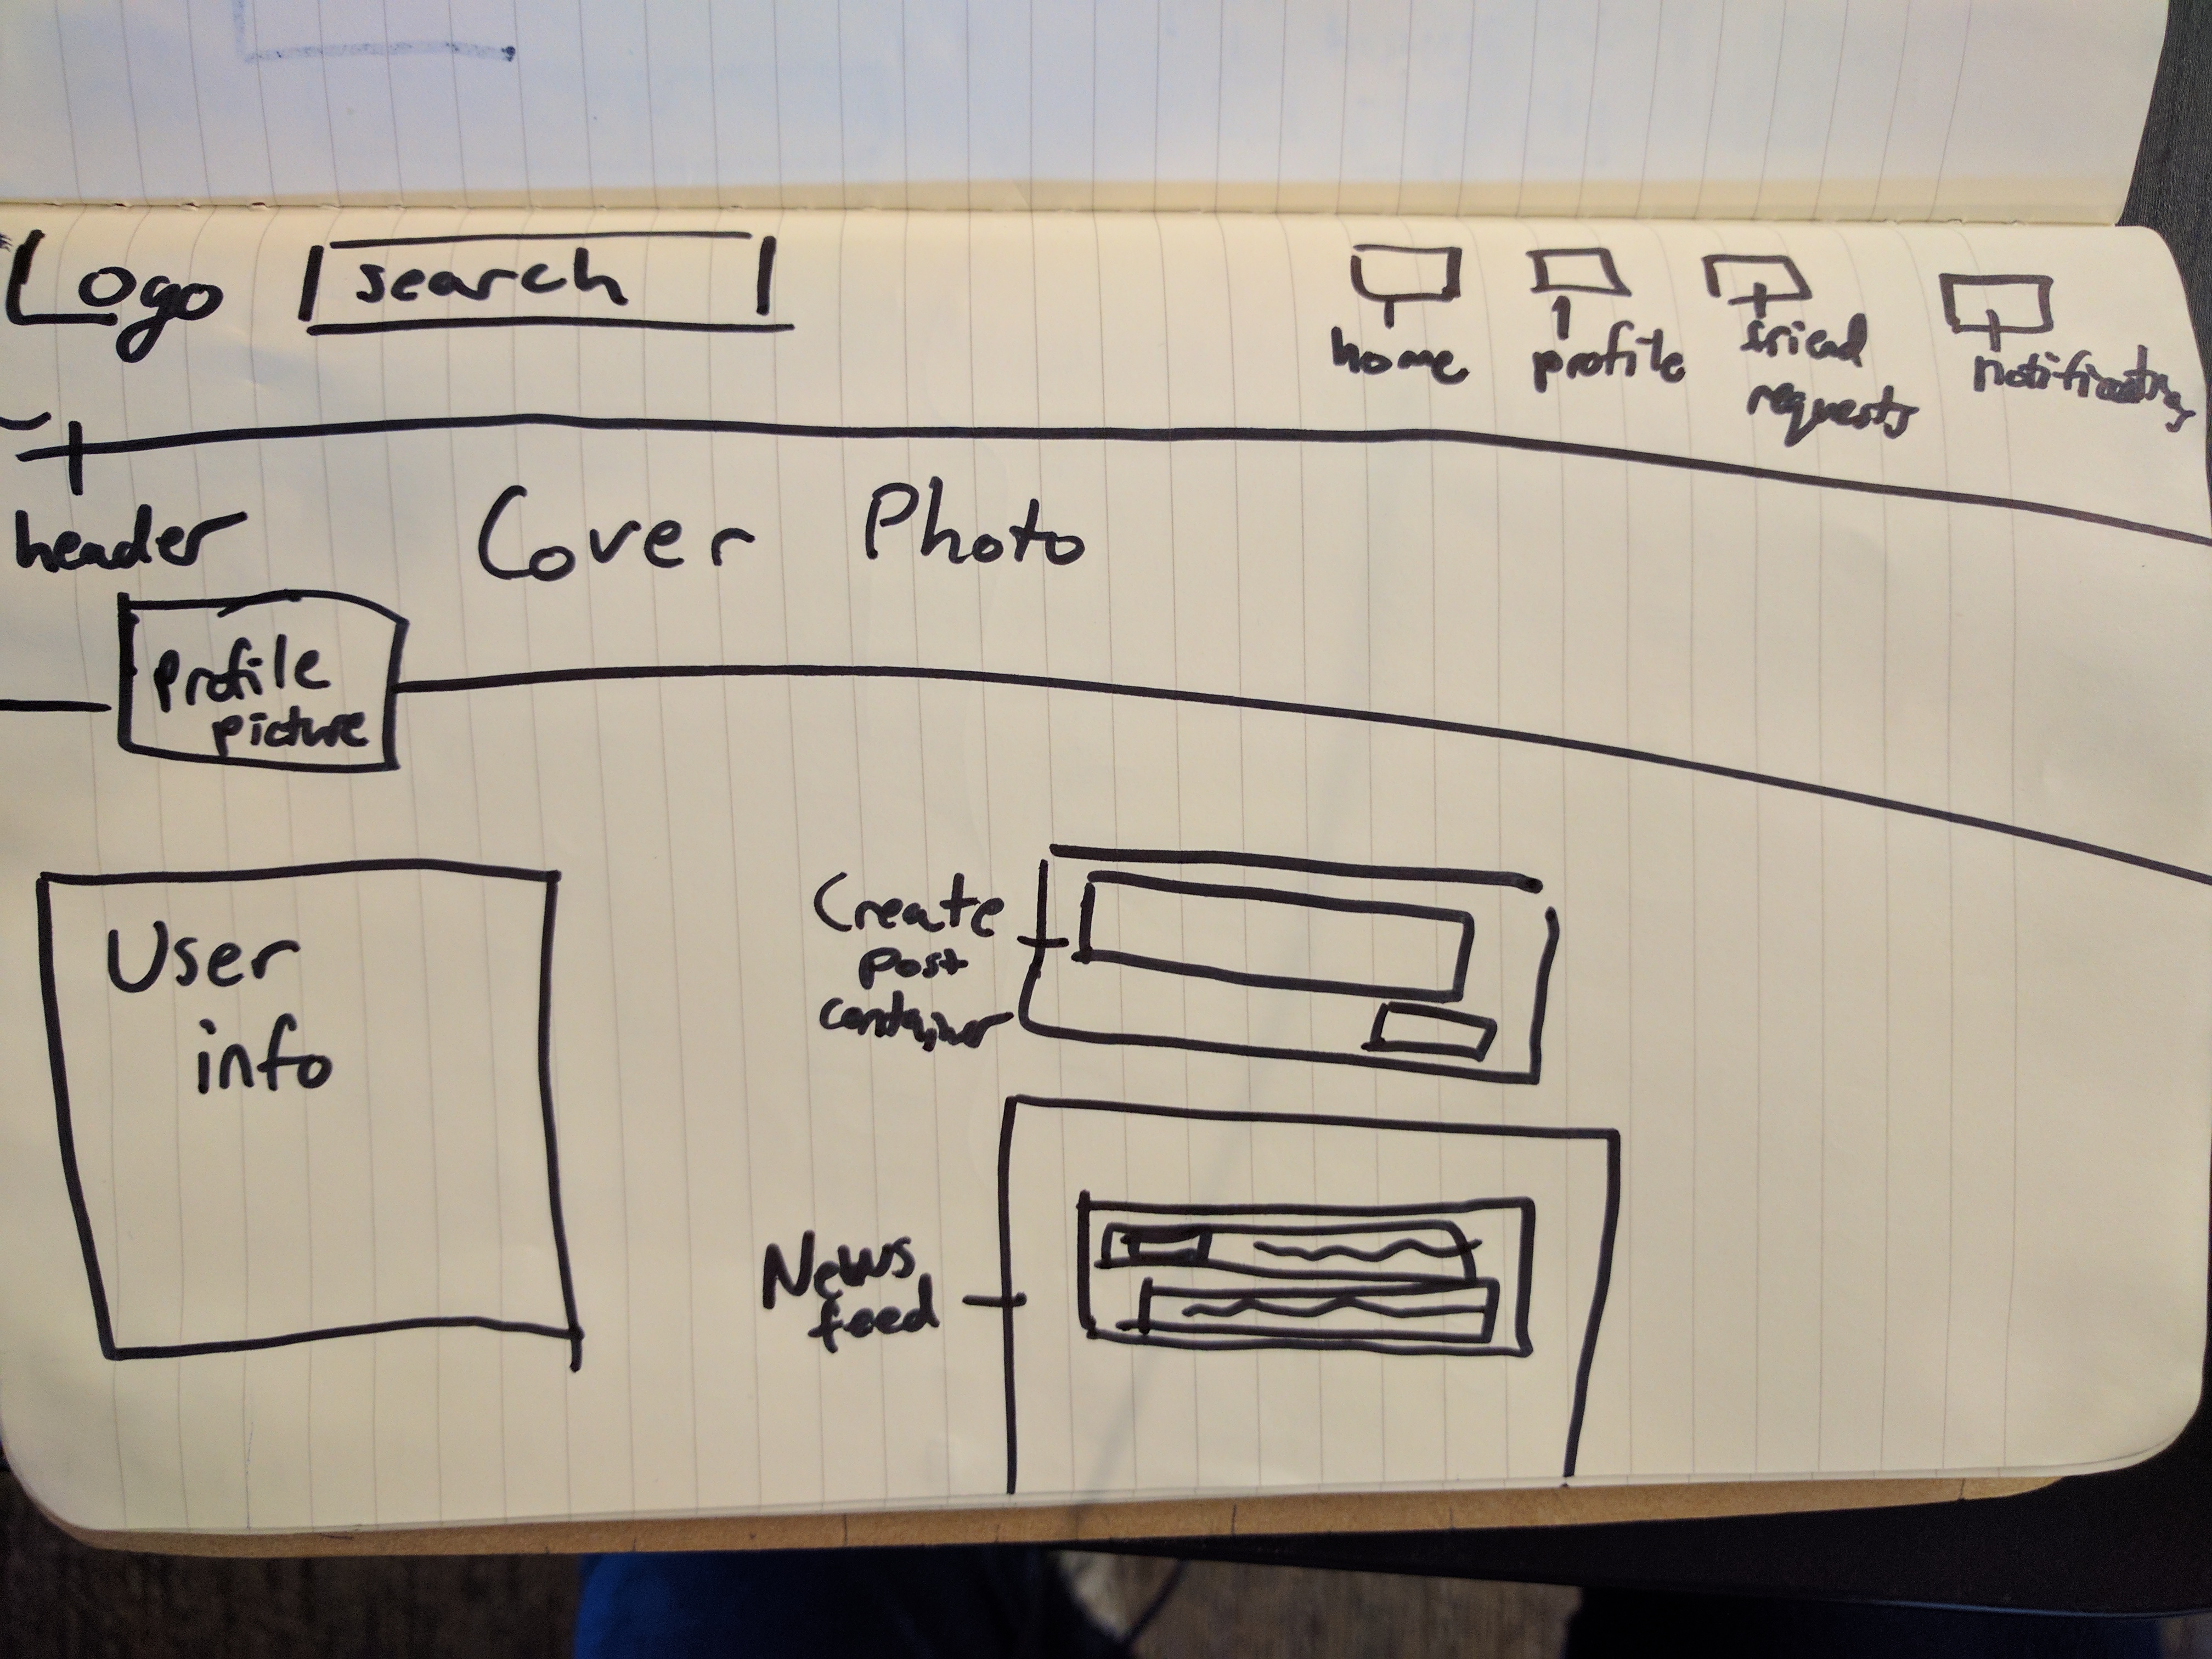 Logo
search
home
profile
friend
requests
notifications
header
Cover Photo
Profile
picture
User
info
Create
post
container
News
feed